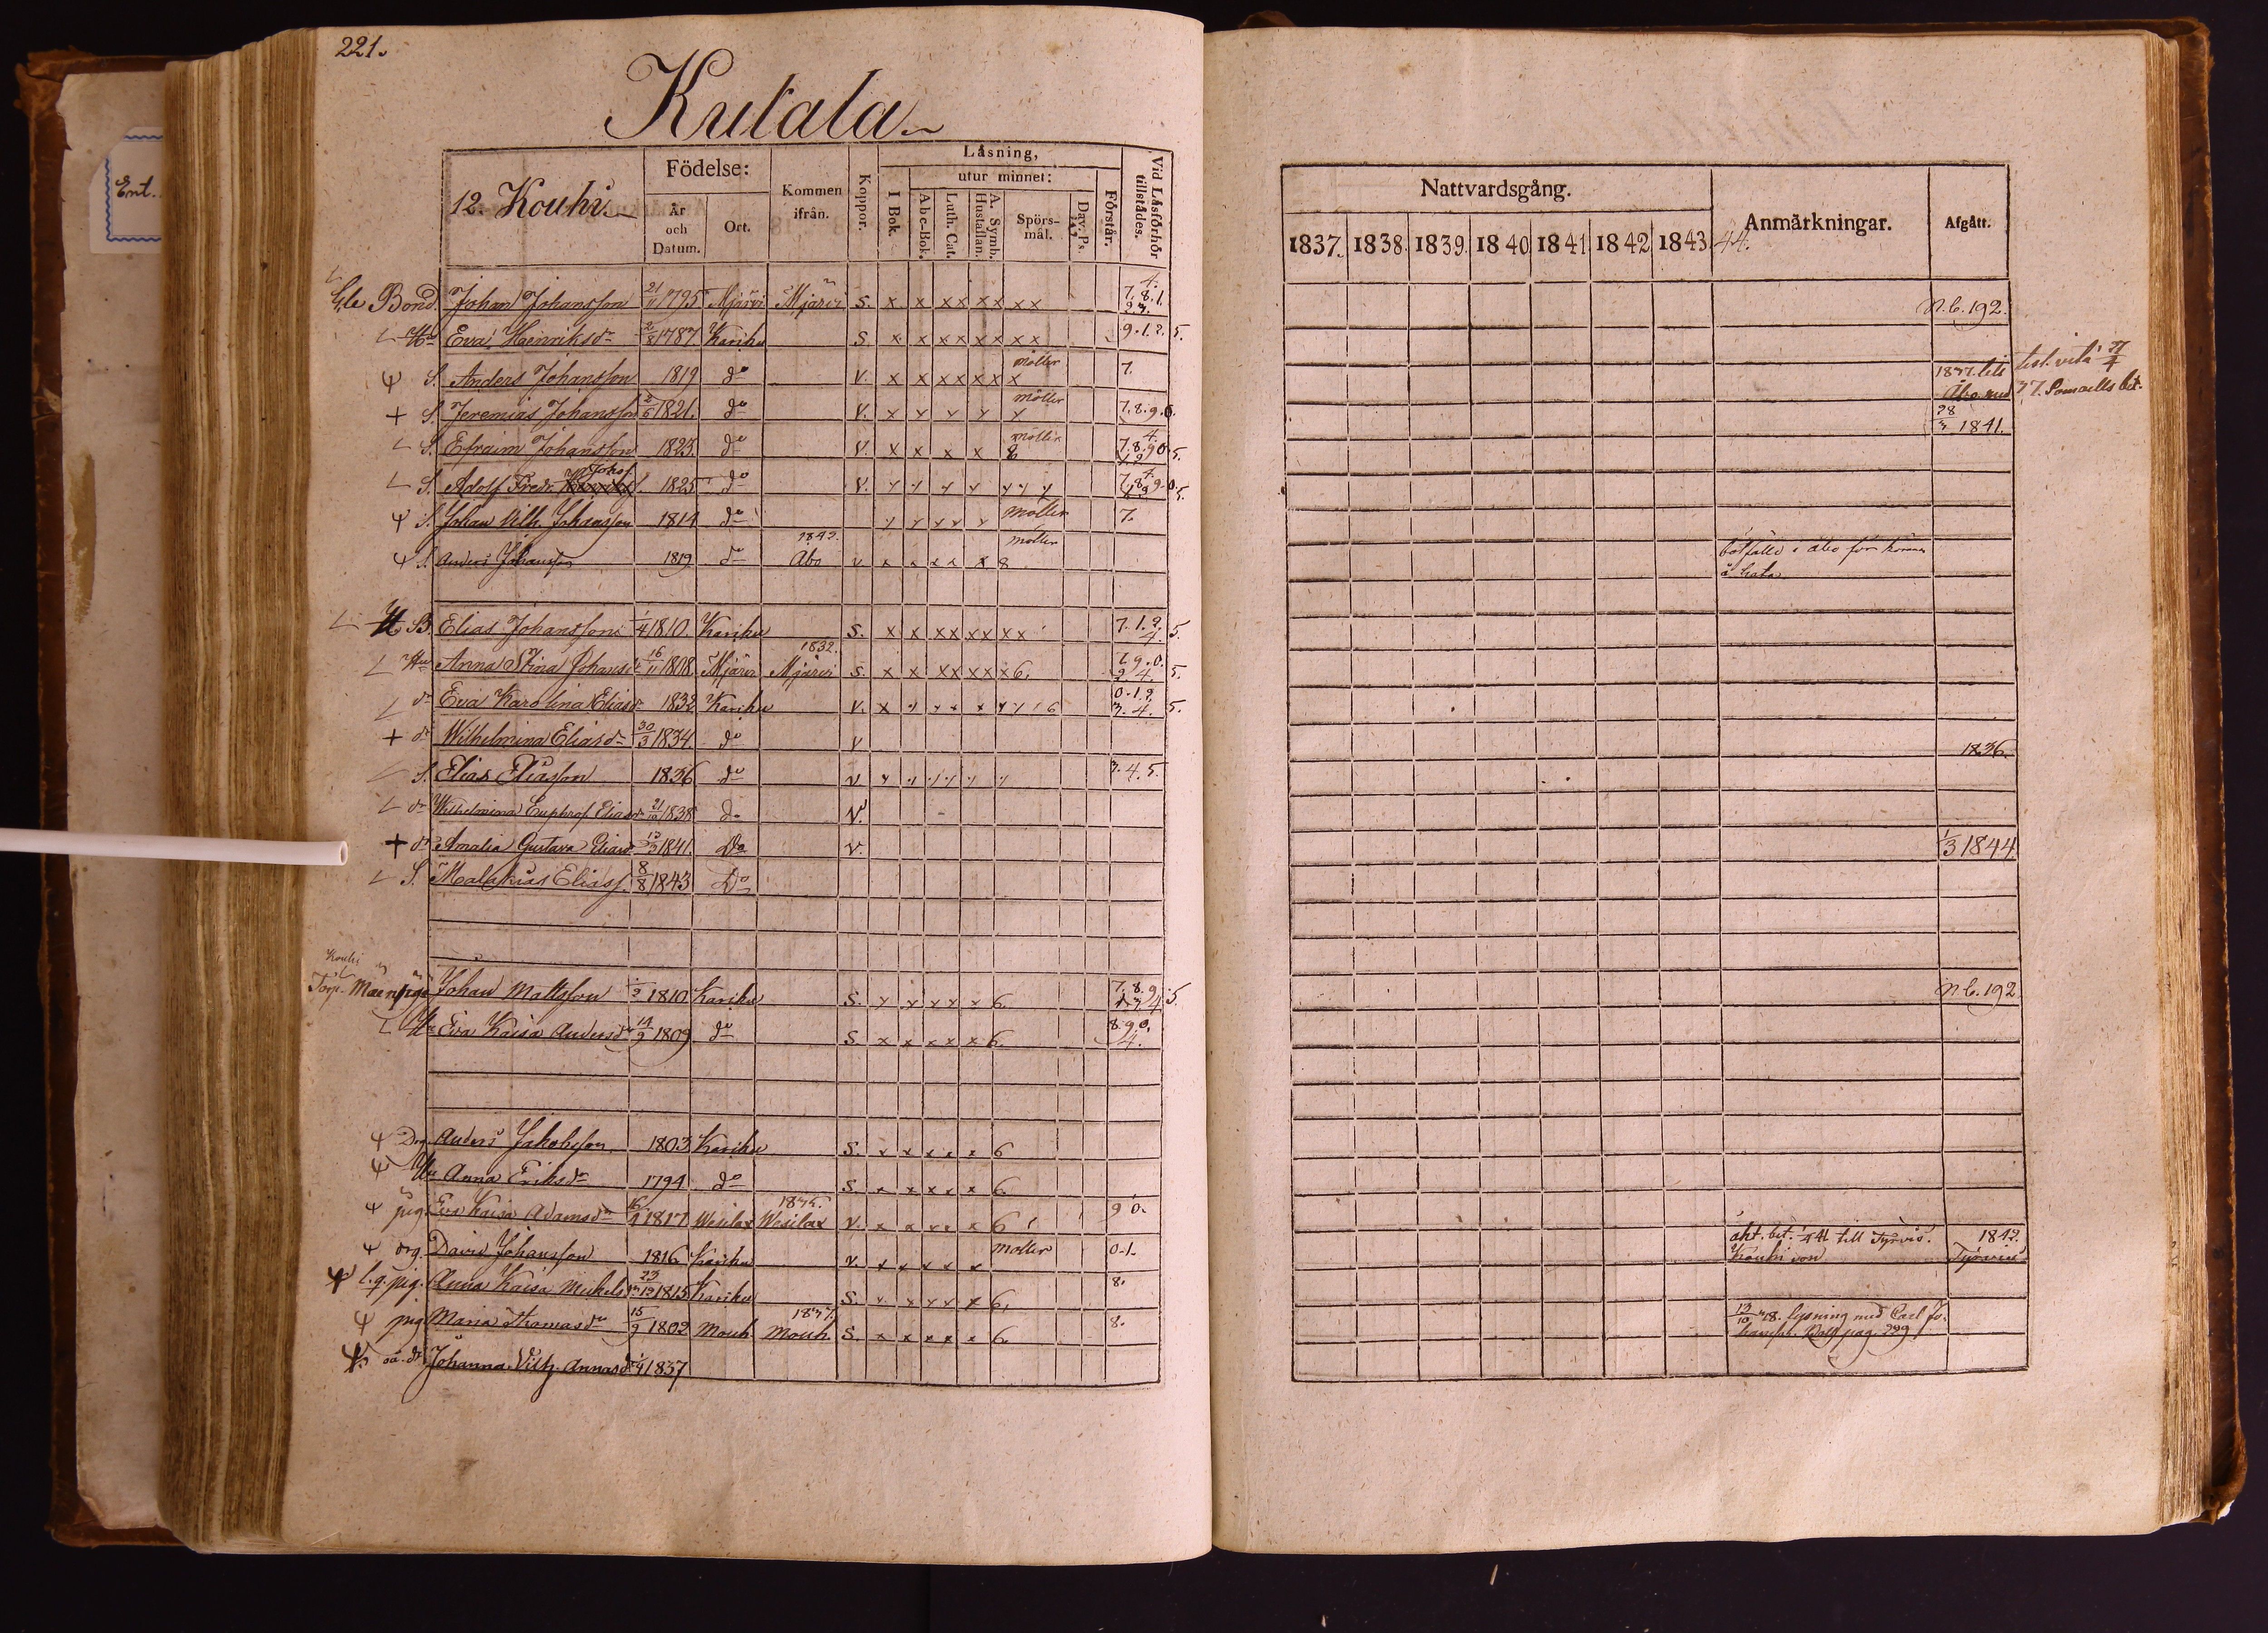 221.
Kutala
Ent.
12. Kouhi
Födelse:
År och Datum.
Ort.
Kommen ifrån.
Koppor.
Läsning,
utur minnet:
I Bok.
Abc-Bok.
Luth. Cat.
A. Symb. Hustaflan.
Spörs-mål.
Dav. Ps.
Förstår.
Vid Läsförhör tillstädes.
Gle Bond. Johan Johansson 21/11 1795 Mjärvi Mjärvi S. x x xx xx xx 4. 7.8.1. 2.3.
Hu Eva Henriksdr 2/8 1787 Kariku S. x x xx xx xx 9.1.2. 5.
S. Anders Johansson 1819 do V. x x xx xx x möller 7.
+ S. Jeremias Johansson 2/6 1821. do V. x x x x x möller 7.8.9.0.
S. Efraim Johansson 1823. do V. x x x x 8 möller 4. 7.8.9.0. 5.
S. Adolf Fredr. Johsf. 1825 do V. 4. 7.8.9.0. 5.
S. Johan Vilh. Johansson 1814 do möller 7.
S. Anders Johansson 1819 do 1842. Åbo v x x x x x 8 möller
B. Elias Johansson 1/4 1810. Kariku S. x x xx xx xx 7.1.2. 4. 5.
Hu Anna Stina Johansdr 16/11 1808. Mjärvi 1832. Mjärvi S. x x xx xx x 6. 9.0. 2.4. 5.
dr Eva Karolina Eliasdr 1832 Kariku V. x 6 0.1.2. 3.4. 5.
+ dr Wilhelmina Eliasdr 30/3 1834 do V
S. Elias Eliasson 1836 do V. 3.4.5.
dr Wilhelmina Euphros. Eliasdr 21/10 1838 do V.
+ dr Amalia Gustava Eliasdr 13/3 1841. Do V.
S. Malakias Eliass. 8/8 1843 Do
Kouhi
Torp. Johan Mattsson 1810. Kariku S. 6. 7.8.9. 1.3.4. 5.
Hu Eva Kaisa Andersdr 14/9 1809 do S. x x x x x 6. 8.9.0. 4.
Drg. Anders Jakobsson 1803 Kariku S. x x x x x 6
Hu Anna Eriksdr 1794 do S. x x x x x 6.
pig. Eva Kaisa Adamsdr 1817 Wesilax 1835. Wesilax V. x x x x x 6 9 0.
drg. David Johansson 1816 Kariku V. x x x x x möller 0-1.
l.q.pig. Anna Kaisa Mickelsdr 23/12 1815 Kariku S. 6, 8.
pig. Maria Thomasdr 15/9 1802 Mouh. 1837. Mouh. S. x x x x x 6. 8.
oä. dr Johanna Vilh. Annasdr 1837
Nattvardsgång.
Anmärkningar.
Afgått.
1837. 1838. 1839. 1840. 1841. 1842. 1843. 44.
N.b. 192.
1837. till Åbo med
28/3 1841.
botfälld i Åbo för
1836.
1/3 1844.
N.b. 192
akt. bet. till Tyrvis. 1842.
Kouhi son Tyrvis
13/10 38. lysning med Carl Jo-
hanss. Vatt pag. 299